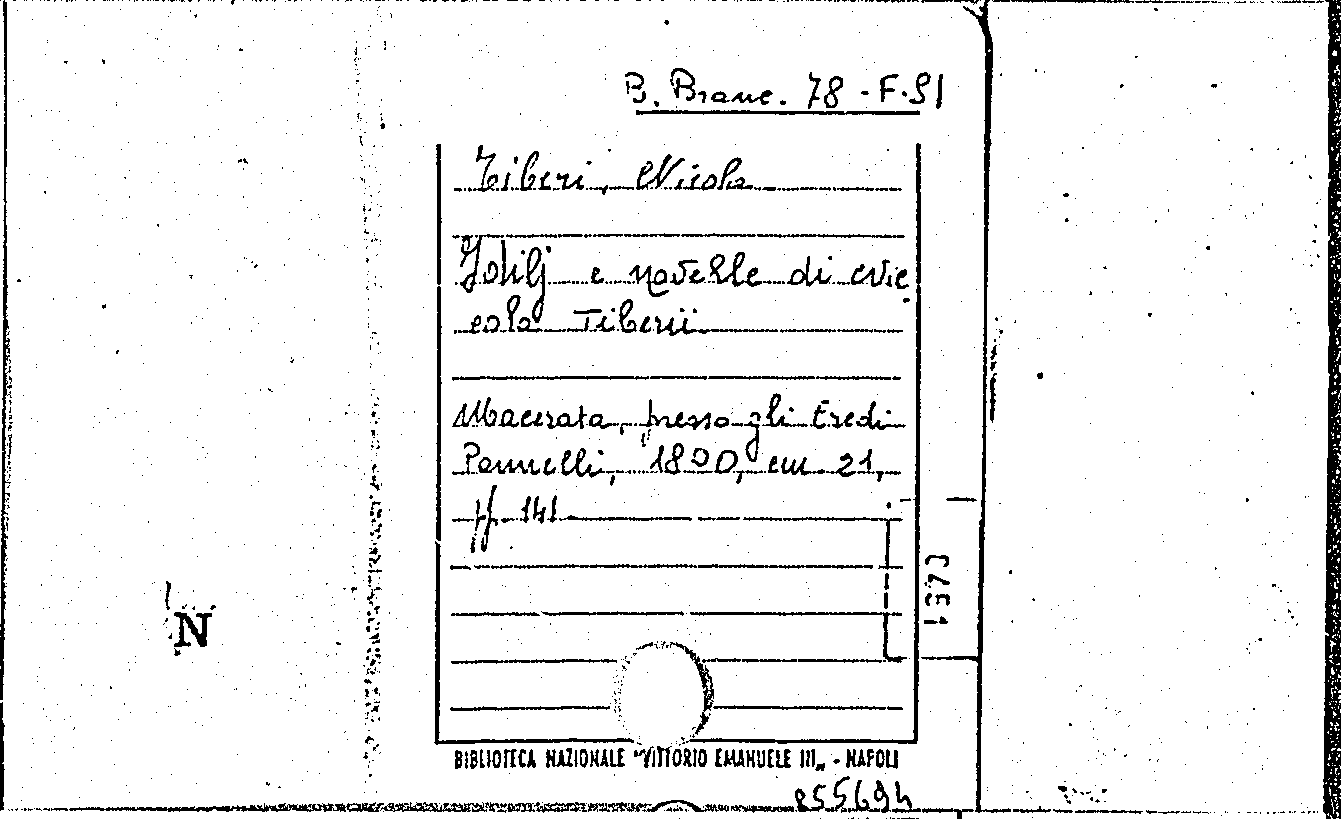 B. Branc. 78 - F. 51
Tiberi, Nicola
Idilij e novelle di Nic
cola Tiberii
Macerata, presso gli Eredi
Pannelli, 1800, cm. 21,
pp. 141
N
BIBLIOTECA NAZIONALE "VITTORIO EMANUELE III„ - NAPOLI